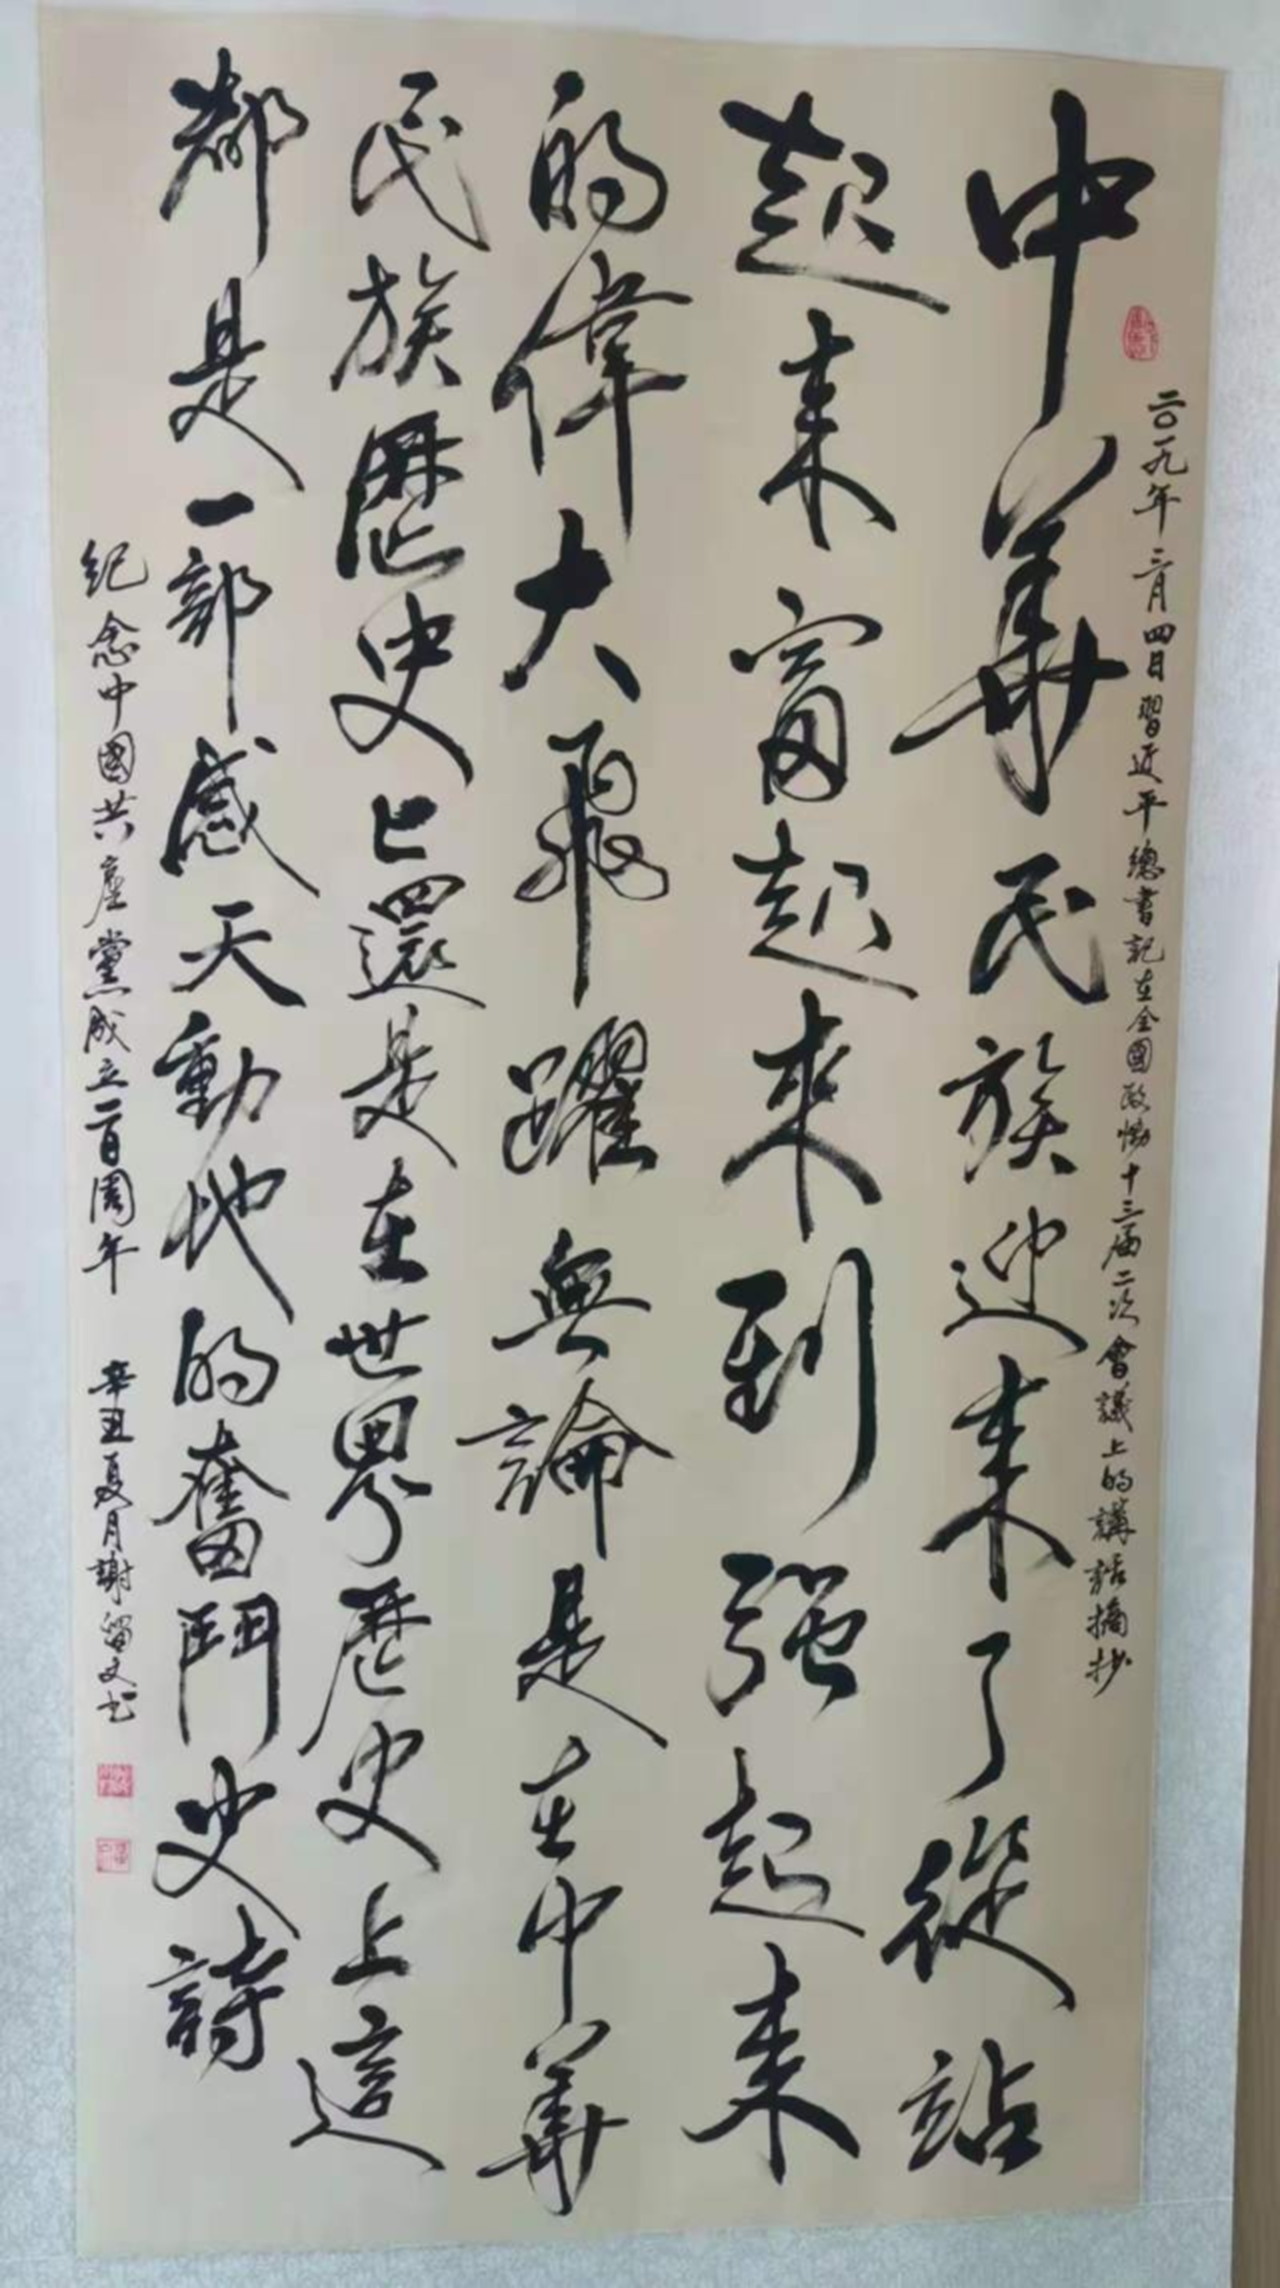 二〇一九年三月四日習近平總書記在全國政協十三届二次會議上的講話摘抄
中華民族迎来了從站
起来富起來到强起来
的偉大飛躍無論是在中華
民族歷史上還是在世界歷史上這
都是一部感天動地的奮鬥史詩
紀念中國共產黨成立一百周年 辛丑夏月謝留文书